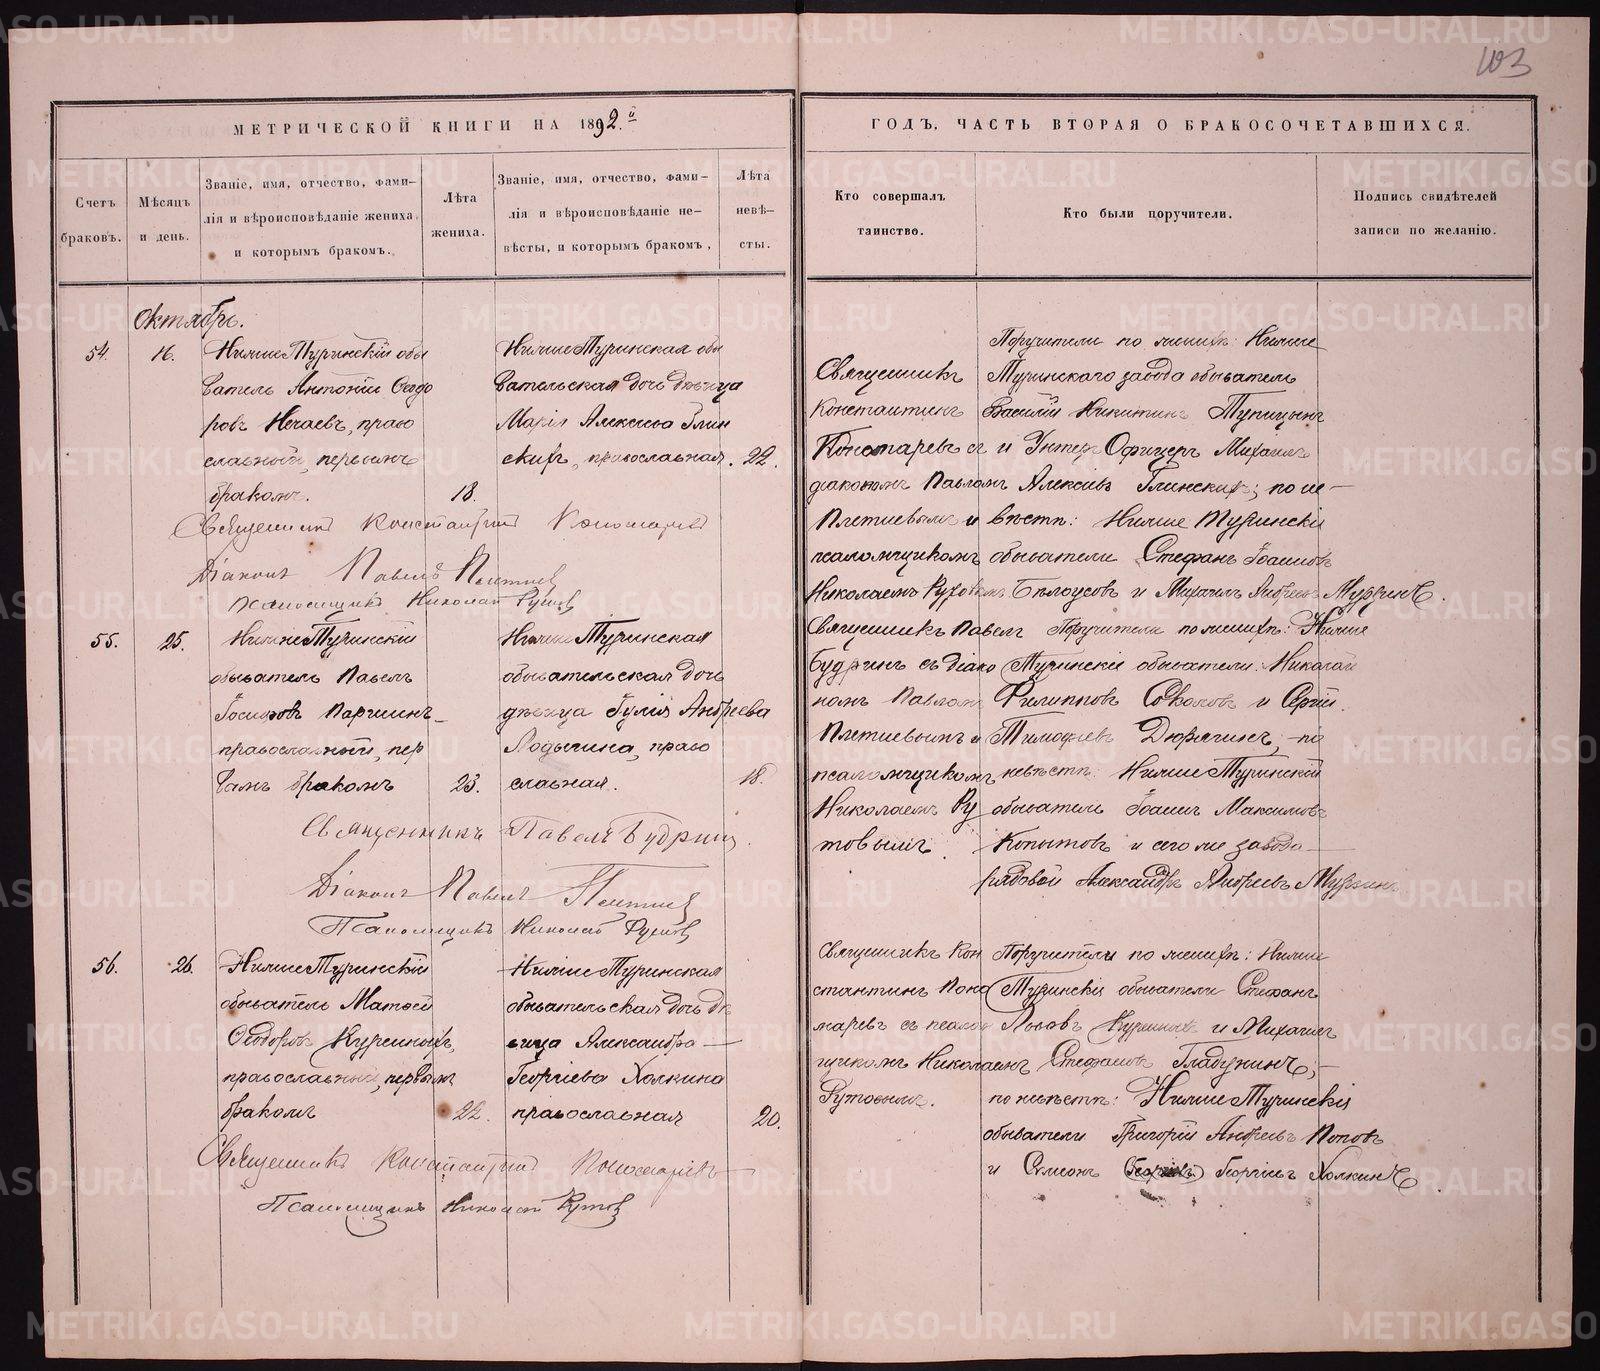 103
МЕТРИЧЕСКОЙ КНИГИ НА 1892.й
ГОДЪ, ЧАСТЬ ВТОРАЯ О БРАКОСОЧЕТАВШИХСЯ.
Счетъ
браковъ.
Мѣсяцъ
и день.
Званіе, имя, отчество, фами-
лія и вѣроисповѣданіе жениха,
и которымъ бракомъ.
Лѣта
жениха.
Званіе, имя, отчество, фами-
лія и вѣроисповѣданіе не-
вѣсты, и которымъ бракомъ,
Лѣта
невѣ-
сты.
Кто совершалъ
таинство.
Кто были поручители.
Подпись свидѣтелей
записи по желанію.
Октябрь.
54.
16.
Нижне Туринскій обы
ватель Антоній Ѳедо
ровъ Нечаевъ, право
славный, первымъ
бракомъ.
18.
Нижне Туринская обы
вательская дочь дѣвица
Марія Алексѣева Глин
скихъ, православная.
22.
Священникъ
Константинъ
Кономаревъ съ
діакономъ Павломъ
Плетневымъ и
псаломщикомъ
Николаемъ
Поручители по женихѣ: Нижне
Туринскаго завода обыватель
Василій Никитинъ Тупицынъ
и Унтеръ Офицеръ Михаилъ
Алексѣевъ Глинскихъ; по не-
вѣстѣ: Нижне Туринскіе
обыватели Стефанъ Іоанновъ
Бѣлоусовъ и Михаилъ Андреевъ Мурзинъ.
Священникъ Константинъ
Діаконъ Павелъ Плетневъ
Псаломщикъ Николай
55.
25.
Нижне Туринскій
обыватель Павелъ
Іосифовъ Паршинъ
православный, пер
вымъ бракомъ
23.
Нижне Туринская
обывательская дочь
дѣвица Іулія Андреева
Лодыгина, право
славная.
18.
Священникъ Павелъ
Будринъ съ діако
номъ Павломъ
Плетневымъ и
псаломщикомъ
Николаемъ Ру
товымъ.
Поручители по женихѣ: Нижне
Туринскіе обыватели: Николай
Филипповъ Соколовъ и Сергій
Тимофеевъ Дюрягинъ, -по
невѣстѣ: Нижне Туринскій
обыватель Іоаннъ Максимовъ
Копытовъ и сего же завода
рядовой Александръ Андреевъ Мурзинъ
Священникъ Павелъ Будринъ.
Діаконъ Павелъ Плетневъ
Псаломщикъ Николай Рутовъ
56.
26.
Нижне Туринскій
обыватель Матѳей
Ѳеодоровъ Куренныхъ,
православный, первымъ
бракомъ
22.
Нижне Туринская
обывательская дочь дѣ
вица Александра
Георгіева Холкина
православная
20.
Священникъ Кон
стантинъ Поно
маревъ съ псалом
щикомъ Николаемъ
Рутовымъ.
Поручители по женихѣ: Нижне
Туринскіе обыватели Стефанъ
Куренныхъ и Михаилъ
Стефановъ Гладунинъ;-
по невѣстѣ: Нижне Туринскіе
обыватели Григорій Андреевъ Поповъ
и Симеонъ Георгіевъ Холкинъ.
Священникъ Константинъ Пономаревъ
Псаломщикъ Николай Рутовъ